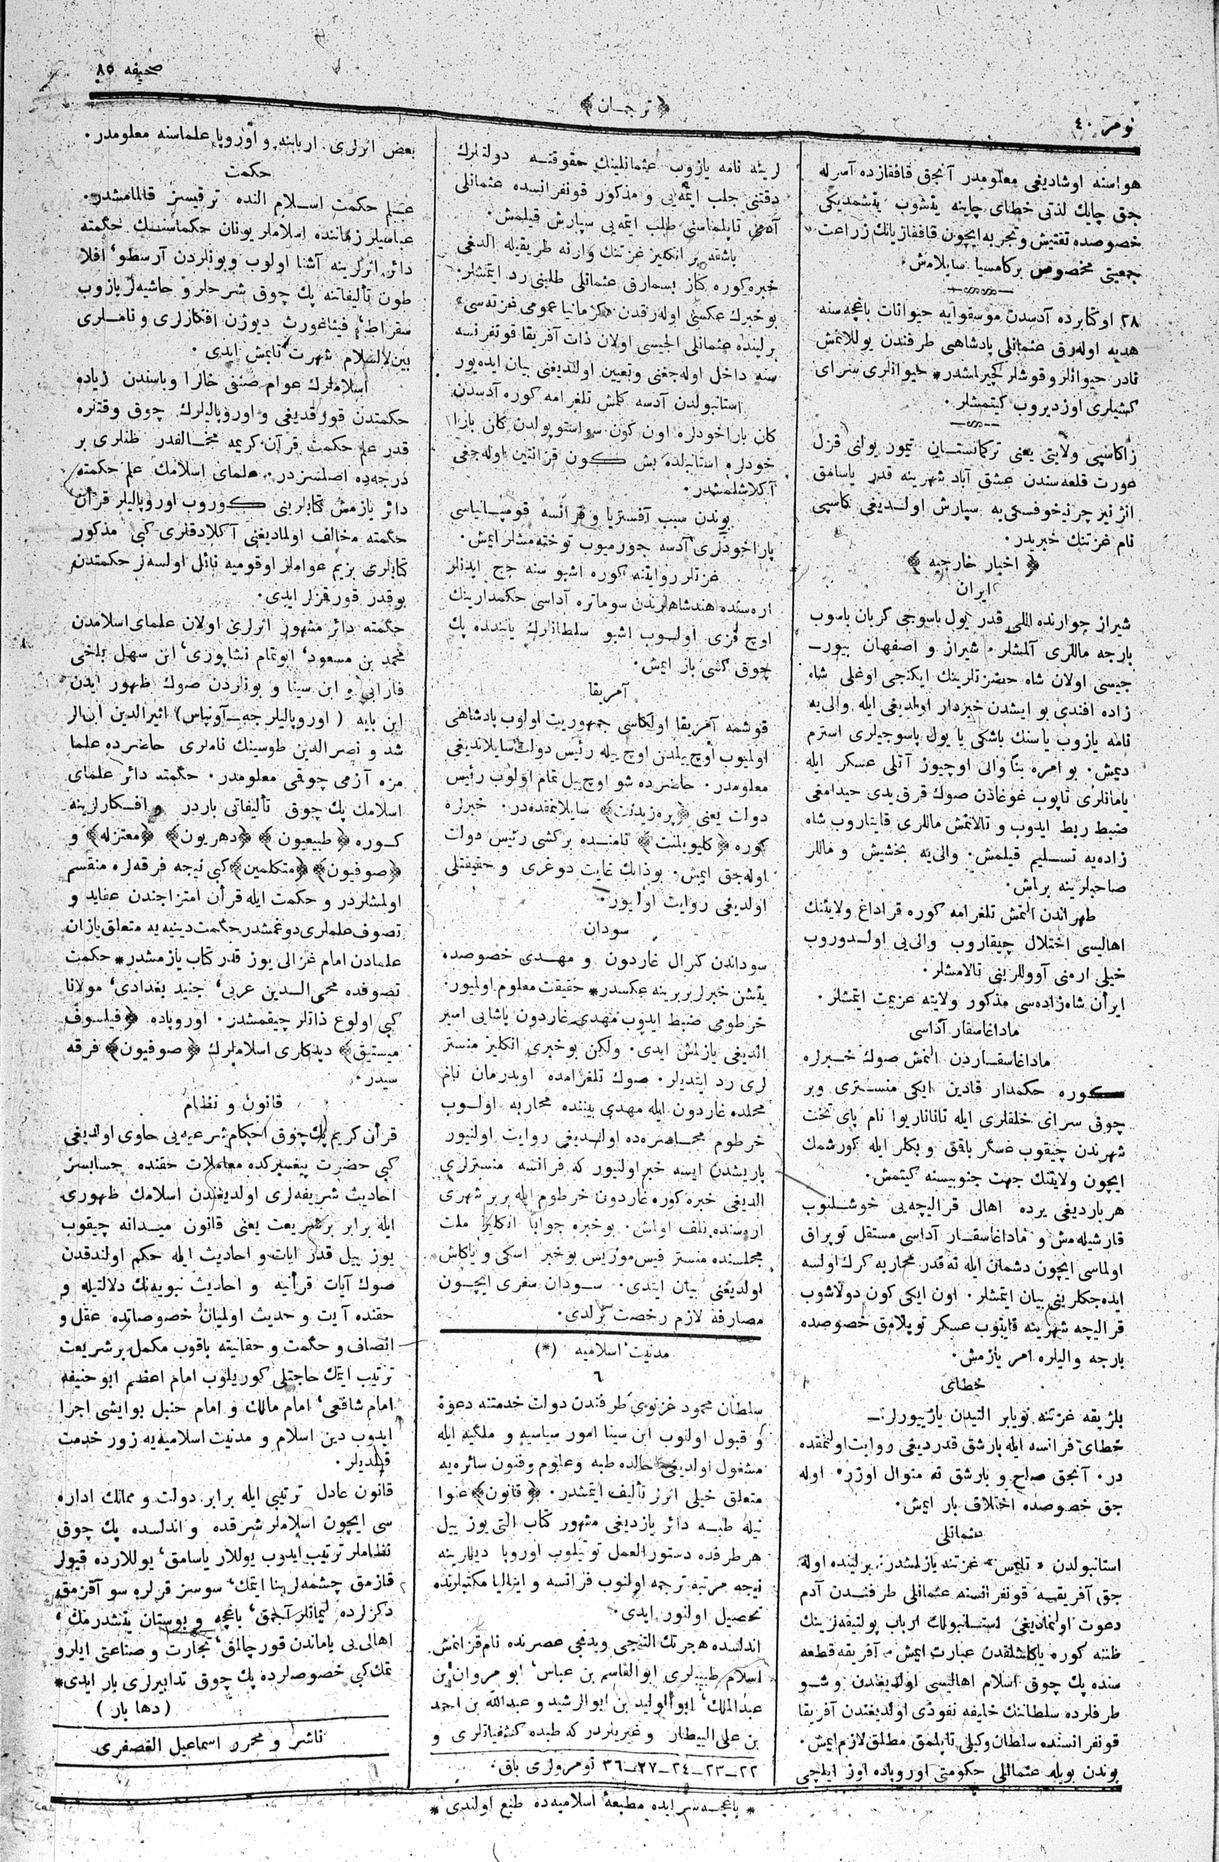 صحیفه ٨٥
﴿ ترجمان ﴾
نومر ٤٠
هواسنه اوشادیغی معلومدر آنجق قافقازده آسرله
جق چایك لذتی خطای چاینه یتشوب یتشمدیكی
خصوصده تفتیش و تجربه ایچون قافقازیانك زراعت
جمعیتی مخصوص بر كامسیا سایلامش.
٢٨ اوكتابرده آدسدن موسقوایه حیوانات باغچه سنه
هدیه اوله رق عثمانلی پادشاهی طرفندن یوللانمش
نادر حیوانلر و قوشلر كچیرلمشدر* حیوانلری سرای
كشیلری اوزدیروب كیتمشلر.
زاكاسپی ولایتی یعنی تركمانستان تیمور یولنی قزل
عورت قلعه سندن عشق آباد شهرینه قدر یاسامق
انژنیر چرنیخوفسكی یه سپارش اولندیغی كاسپی
نام غزتنك خبریدر.
﴿ اخبار خارجیه ﴾
ایران
شیراز جوارنده اللی قدر یول باسوجی كربان باسوب
بارچه ماللری آلمشلر. شیراز و اصفهان بیور-
جیسی اولان شاه حضرتلرینك ایكنجی اوغلی شاه
زاده افندی بو ایشدن خبردار اولدیغی ایله والی یه
نامه یازوب یاسنك باشكی یا یول باسوجیلری استرم
دیمش. بو امره بناً والی اوچیوز آتلی عسكر ایله
یامانلری تاپوب غوغادن صوك قرق یدی حیدامغی
ضبط ربط ایدوب و تالانمش ماللری قایتاروب شاه
زاده یه تسلیم قیلمش. والی یه بخشیش و ماللر
صاحبلرینه برلش.
طهراندن آلنمش تلغرامه كوره قراداغ ولایتنك
اهالیسی اختلال چیقاروب والی یی اولدوروب
خیلی ارمنی آووللرینی تالامشلر.
ایران شاه زاده سی مذكور ولایته عزیمت ایتمشلر.
ماداغاسقار آداسی
ماداغاسقاردن آلنمش صوك خبرلره
كوره حكمدار قادین ایكی منستری و بر
چوق سرای خلقلری ایله تاناناریوا نام پای تخت
شهرندن چیقوب عسكر باقق و بكلر ایله كورشمك
ایچون ولایتنك جهت جنوبیسنه كیتمش.
هر باردیغی یرده اهالی قرالیچه یی خوشلنوب
قارشیله مش و ماداغاسقار آداسی مستقل توپراق
اولماسی ایچون دشمان ایله نه قدر محاربه كرك اولسه
ایده جكلرینی بیان ایتمشلر. اون ایكی كون دولاشوب
قرالیچه شهرینه قایتوب عسكر توپلامق خصوصده
بارچه والیلره امر یازمش.
خطای
بلژیقه غزتنه نویابر التیدن یازییورلر-
خطای فرانسه ایله بارشق قدردیغی روایت اولنمقده
در. آنجق صلح و بارشق نه منوال اوزره اوله
جق خصوصده اختلاف بار ایمش.
عثمانلی
استانبولدن « تایمس » غزتنه یازلمشدر: برلینده اوله
جق آفریقه قونفرانسنه عثمانلی طرفندن آدم
دعوت اولنمادیغی استانبولك ارباب پولتیقه لرینك
ظننه كوره یاكلشلقدن عبارت ایمش. آفریقه قطعه
سنده پك چوق اسلام اهالیسی اولدیغندن و شو
طرفلرده سلطاننك خلیفه نفوذی اولدیغندن آفریقا
قونفرانسنده سلطان وكیلی تابلمق مطلق لازم ایمش.
بوندن بویله عثمانلی حكومتی اوروپاده اوز ایلچی
لرینه نامه یازوب عثمانلینك حقوقنه دولتلرك
دقتنی جلب ایتمه یی و مذكور قونفرانسده عثمانلی
آدمی تاپلماسنی طلب ایتمه یی سپارش قیلمش.
باشقه بر انكلیز غزتنك وارنه طریقیله الدغی
خبره كوره كناز بسمارق عثمانلی طلبنی رد ایتمشلر.
بو خبرك عكسنی اوله رقدن «كرمانیا عمومی غزته سی»
برلینده عثمانلی الجیسی اولان ذات آفریقا قونفرانسه
سنه داخل اوله جغنی و تعیین اولندیغنی بیان ایده یور
استانبولدن آدسه كلمش تلغرامه كوره آدسدن
كان باراخودلره اون كون سواستوپولدن كان بارا
خودلره استانبلده بش كون قرانتین اوله جغی
آكلاشلمشدر.
بوندن سبب آفستریا و فرانسه قومپانیاسی
پاراخودلری آدسه جورمیوب توخته مشلر ایمش.
غزتلر روایتنه كوره اشبو سنه حج ایدنلر
اره سنده هند شاهلرندن سوماتره آداسی حكمدارینك
اوچ قزی اولوب اشبو سلطانلرك یاننده پك
چوق كشی بار ایمش.
آمریقا
قوشمه آمریقا اولكاسی جمهوریت اولوب پادشاهی
اولمیوب اوچ ییلدن اوچ ییله رئیس دولت سایلاندیغی
معلومدر. حاضرده شو اوچ ییل تمام اولوب رئیس
دولت یعنی ﴿پره زیدنت﴾ سایلانمقده در. خبرلره
كوره ﴿كلیویلنت﴾ نامنده بر كشی رئیس دولت
اوله جق ایمش. بوذانك غایت دوغری و حقیقتلی
اولدیغی روایت اولنور.
سودان
سوداندن كنرال غاردون و مهدی خصوصده
یتشن خبرلر بربرینه عكسدر* حقیقت معلوم اولمیور.
خرطومی ضبط ایدوب مهدی غاردون پاشایی اسیر
الدیغی یازلمش ایدی. ولكن بو خبری انكلیز منستر
لری رد ایتدیلر. صوك تلغرامده اوبدرمان نام
محلده غاردون ایله مهدی بیننده محاربه اولوب
خرطوم محاصره ده اولندیغی روایت اولنیور
پاریشدن ایسه خبر اولنیور كه فرانسه منسترلری
الدیغی خبره كوره غاردون خرطوم ایله بربر شهری
اره سنده تلف اولمش. بو خبره جواباً انكلیز ملت
مجلسنده منستر فیس موریس بو خبر اسكی و یاكلش
اولدیغی بیان ایتدی. سودان سفری ایچون
مصارفه لازم رخصت برلدی.
مدنیت اسلامیه (*)
٦
سلطان محمود غزنوی طرفندن دولت خدمتنه دعوة
و قبول اولنوب ابن سینا امور سیاسیه و ملكیه ایله
مشغول اولدیغی حالده طبه و علوم و فنون سائره یه
متعلق خیلی اثرلر تألیف ایتمشدر. ﴿ قانون ﴾ عنوا
نیله طبه دائر یازدیغی مشهور كتاب التی یوز ییل
هر طرفده دستور العمل توتیلوب اوروپا دیللرینه
نیچه مرتبه ترجمه اولنوب فرانسه و ایتالیا مكتبلرنده
تحصیل اولنور ایدی.
اندلسده هجرتك التنجی و یدنجی عصرنده نام قزانمش
اسلام طبیبلری ابو القاسم بن عباس، ابو مروان بن
عبدالملك، ابو الولید بن ابو الرشید و عبدالله بن احمد
بن علی البیطار و غیریلردر كه طبده كشفیاتلری و
٢٢–٢٣–٢٤–٢٧–٣٦ نومرولری باق.
بعض اثرلری اربابنه و اوروپا علماسنه معلومدر.
حكمت
علم حكمت اسلام النده ترقیسز قالمامشدر.
عباسیلر زماننده اسلاملر یونان حكماسنك حكمته
دائر اثرلرینه آشنا اولوب و بونلردن آرسطو، افلا
طون تألیفاتنه پك چوق شرحلر و حاشیه لر یازوب
سقراط، فیثاغورث دیوژن افكارلری و ناملری
بین الاسلام شهرت تاپمش ایدی.
اسلاملرك عوام صنفی حالا و باسندن زیاده
حكمتدن قورقدیغی و اوروپالیلرك چوق وقتلره
قدر علم حكمت قرآن كریمه مخالفدر ظنلری بر
درجه ده اصلسزدر. علمای اسلامك علم حكمته
دائر یازمش كتابلرینی كوروب اوروپالیلر قرآن
حكمته مخالف اولمادیغنی آكلادقلری كبی مذكور
كتابلری بزیم عواملر اوقومیه نائل اولسه لر حكمتدن
بوقدر قورقمزلر ایدی.
حكمته دائر مشهور اثرلری اولان علمای اسلامدن
محمد بن مسعود، ابو تمام نشاپوری، ابن سهل بلخی
فارابی و ابن سینا و بونلردن صوك ظهور ایدن
ابن بایه ( اوروپالیلرجه – آوئپاس) اثیر الدین ابهر
شد و نصر الدین طوسینك ناملری حاضرده علما
مزه آزمی چوقمی معلومدر. حكمته دائر علمای
اسلامك پك چوق تألیفاتی باردر و افكارلرینه
كوره ﴿ طبیعیون ﴾ ﴿دهریون﴾ ﴿معتزله﴾ و
﴿صوفیون﴾ ﴿متكلمین﴾ كبی نیچه فرقه لره منقسم
اولمشلردر و حكمت ایله قرآن امتزاجندن عقاید و
تصوف علملری دوغمشدر حكمت دینیه یه متعلق یازان
علمادن امام غزالی یوز قدر كتاب یازمشدر* حكمت
تصوفده محی الدین عربی، جنید بغدادی، مولانا
كبی اولوغ ذاتلر چیقمشدر. اوروپاده ﴿ فیلسوف
میستیق﴾ دیدكلری اسلاملرك ﴿صوفیون﴾ فرقه
سیدر.
قانون و نظام
قرآن كریم پك چوق احكام شرعیه یی حاوی اولدیغی
كبی حضرت پیغمبركده معاملات حقنده حسابسز
احادیث شریفه لری اولدیغندن اسلامك ظهوری
ایله برابر بر شریعت یعنی قانون میدانه چیقوب
یوز ییل قدر آیات و احادیث ایله حكم اولندقدن
صوك آیات قرآنیه و احادیث نبویه نك دلالتیله و
حقنده آیت و حدیث اولمیان خصوصاتده عقل و
انصاف و حكمت و حقانیته باقوب مكمل بر شریعت
ترتیب ایتمك حاجتلی كوریلوب امام اعظم ابو حنیفه
امام شافعی، امام مالك و امام حنبل بو ایشی اجرا
ایدوب دین اسلام و مدنیت اسلامیه یه زور خدمت
قیلدیلر.
قانون عادل ترتیبی ایله برابر دولت و ممالك اداره
سی ایچون اسلاملر شرقده و اندلسده پك چوق
نظاملر ترتیب ایدوب یوللار یاسامق، یوللارده قیولر
قازمق چشمه لر بنا ایتمك، سوسز قرلره سو آقزمق،
دكزلرده لیمانلر آچمق، باغچه و بوستان یتشدرمك،
اهالی یی یاماندن قورچالمق، تجارت و صناعتی ایلرو
تمك كبی خصوصلرده پك چوق تدابیرلری بار ایدی*
( دها بار )
ناشر و محرری اسماعیل الغصفری
* باغچه سرایده مطبعهٔ اسلامیه ده طبع اولندی *